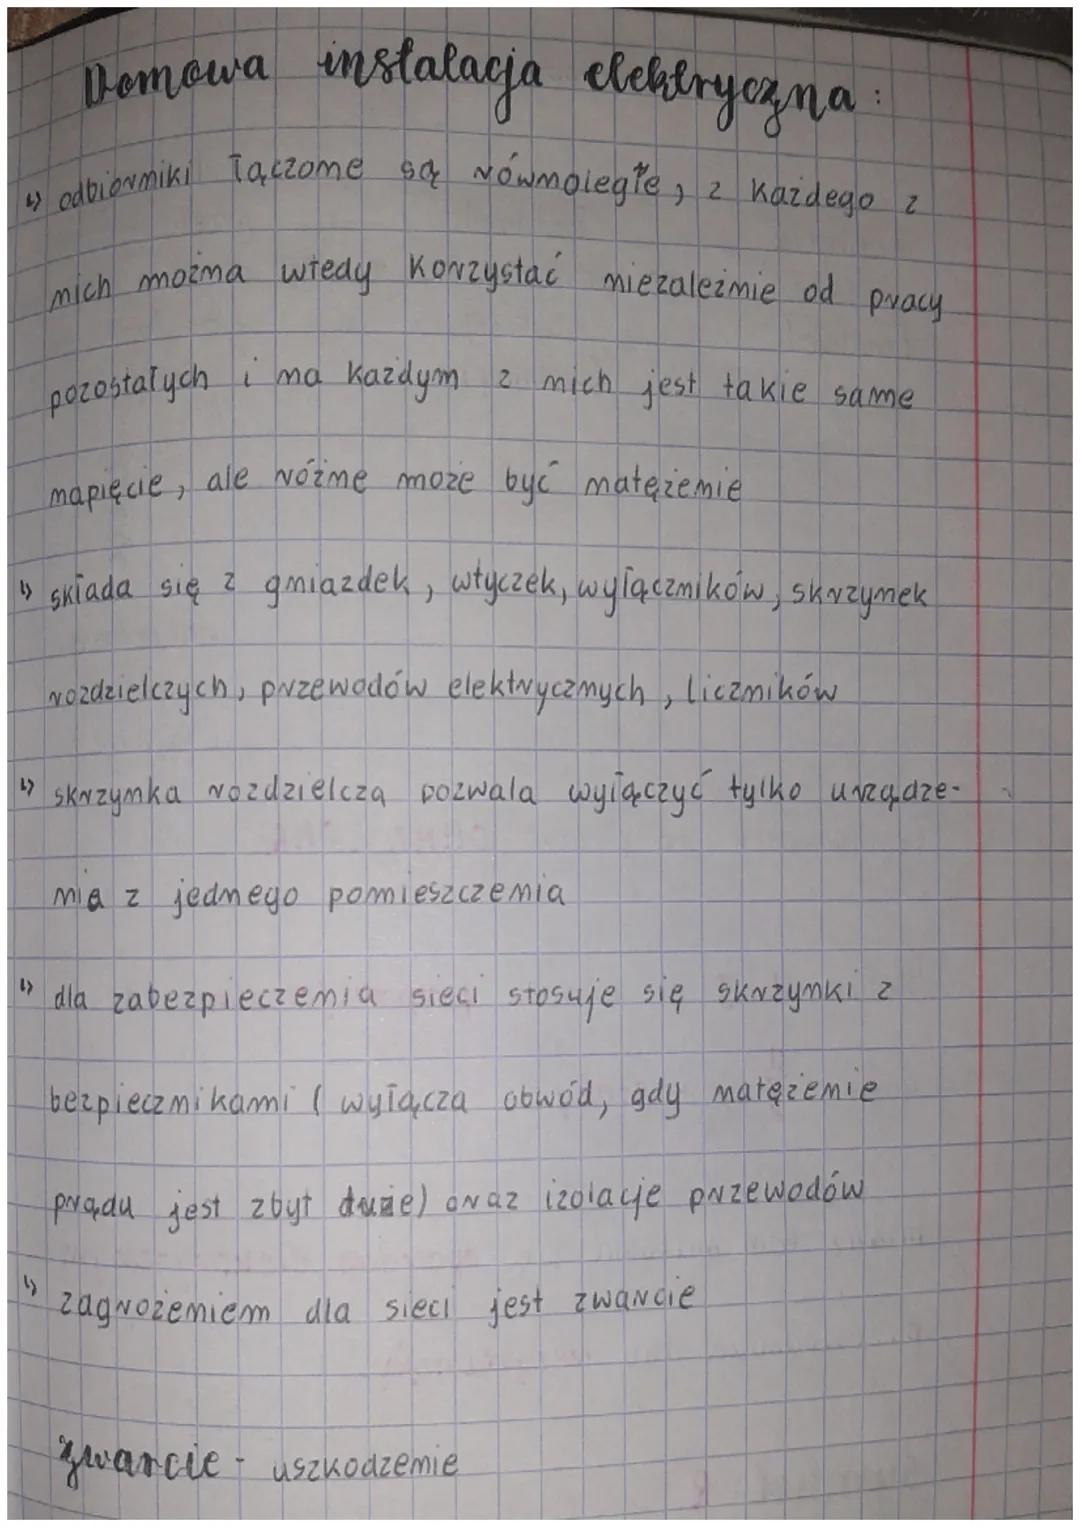 Domowa instalacja elektryczna:
↳ odbiorniki łączone są równoległe, z każdego z
nich można wtedy korzystać niezależnie od pracy
pozostałych i na każdym z nich jest takie same
napięcie, ale różne może być natężenie
↳ składa się z gniazdek, wtyczek, wyłączników, skrzynek
rozdzielczych, przewodów elektrycznych, liczników
↳ skrzynka rozdzielcza pozwala wyłączyć tylko urządze-
nia z jednego pomieszczenia
↳ dla zabezpieczenia sieci stosuje się skrzynki z
bezpiecznikami (wyłącza obwód, gdy natężenie
prądu jest zbyt duże) oraz izolacje przewodów
↳ zagrożeniem dla sieci jest zwarcie
zwarcie - uszkodzenie